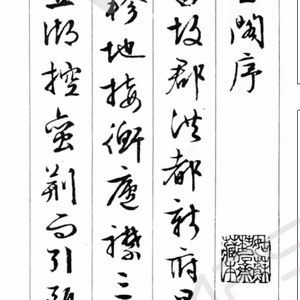 閣序
故郡洪都新府
軫地接衡廬襟三
湖控蛮荆而引